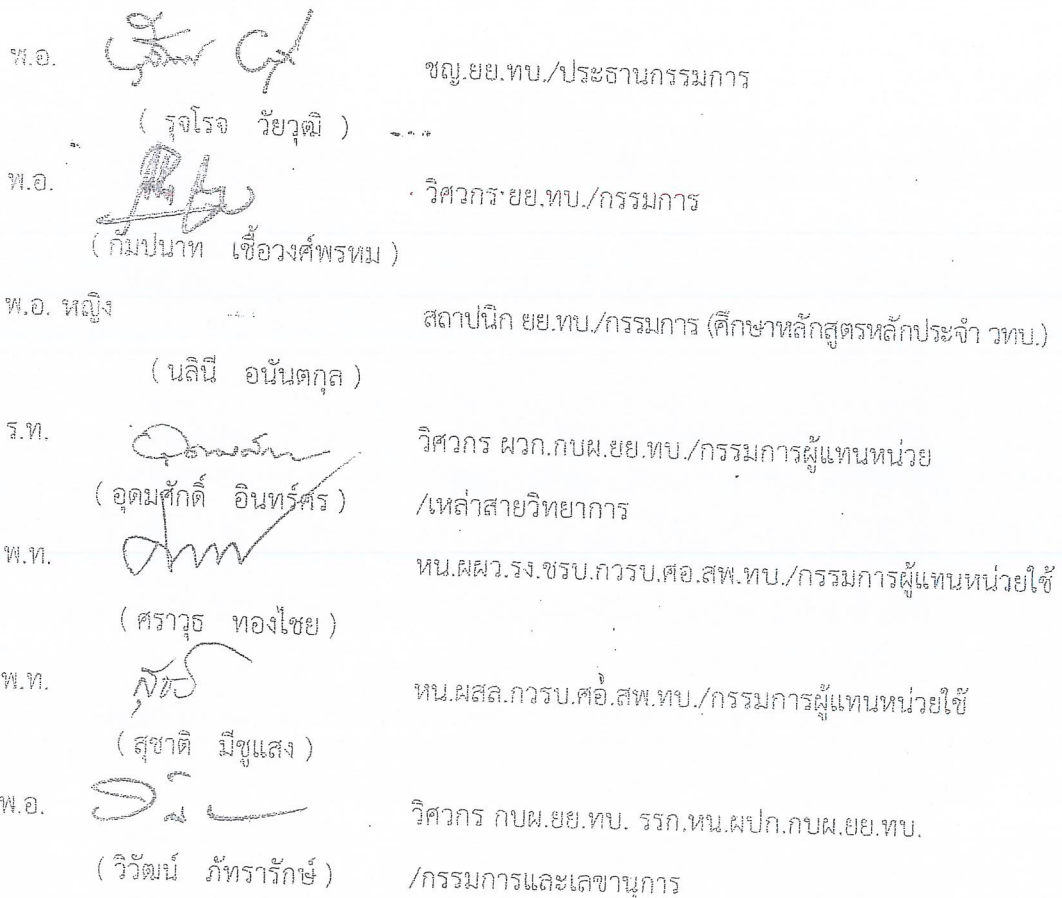 พ.อ. ชญ.ยย.ทบ./ประธานกรรมการ
( รุจโรจ วัยวุฒิ )
พ.อ. วิศวกร ยย.ทบ./กรรมการ
( กัมปนาท เชื้อวงศ์พรหม )
พ.อ. หญิง สถาปนิก ยย.ทบ./กรรมการ (ศึกษาหลักสูตรหลักประจำ วทบ.)
( นลินี อนันตกุล )
ร.ท. วิศวกร ผวก.กบผ.ยย.ทบ./กรรมการผู้แทนหน่วย
( อุดมศักดิ์ อินทร์ศร ) /เหล่าสายวิทยาการ
พ.ท. หน.ผผว.รง.ซรบ.กวรบ.ศอ.สพ.ทบ./กรรมการผู้แทนหน่วยใช้
( ศราวุธ ทองไชย )
พ.ท. หน.ผสล.กวรบ.ศอ.สพ.ทบ./กรรมการผู้แทนหน่วยใช้
( สุชาติ มีชูแสง )
พ.อ. วิศวกร กบผ.ยย.ทบ. รรก.หน.ผปก.กบผ.ยย.ทบ.
( วิวัฒน์ ภัทรารักษ์ ) /กรรมการและเลขานุการ